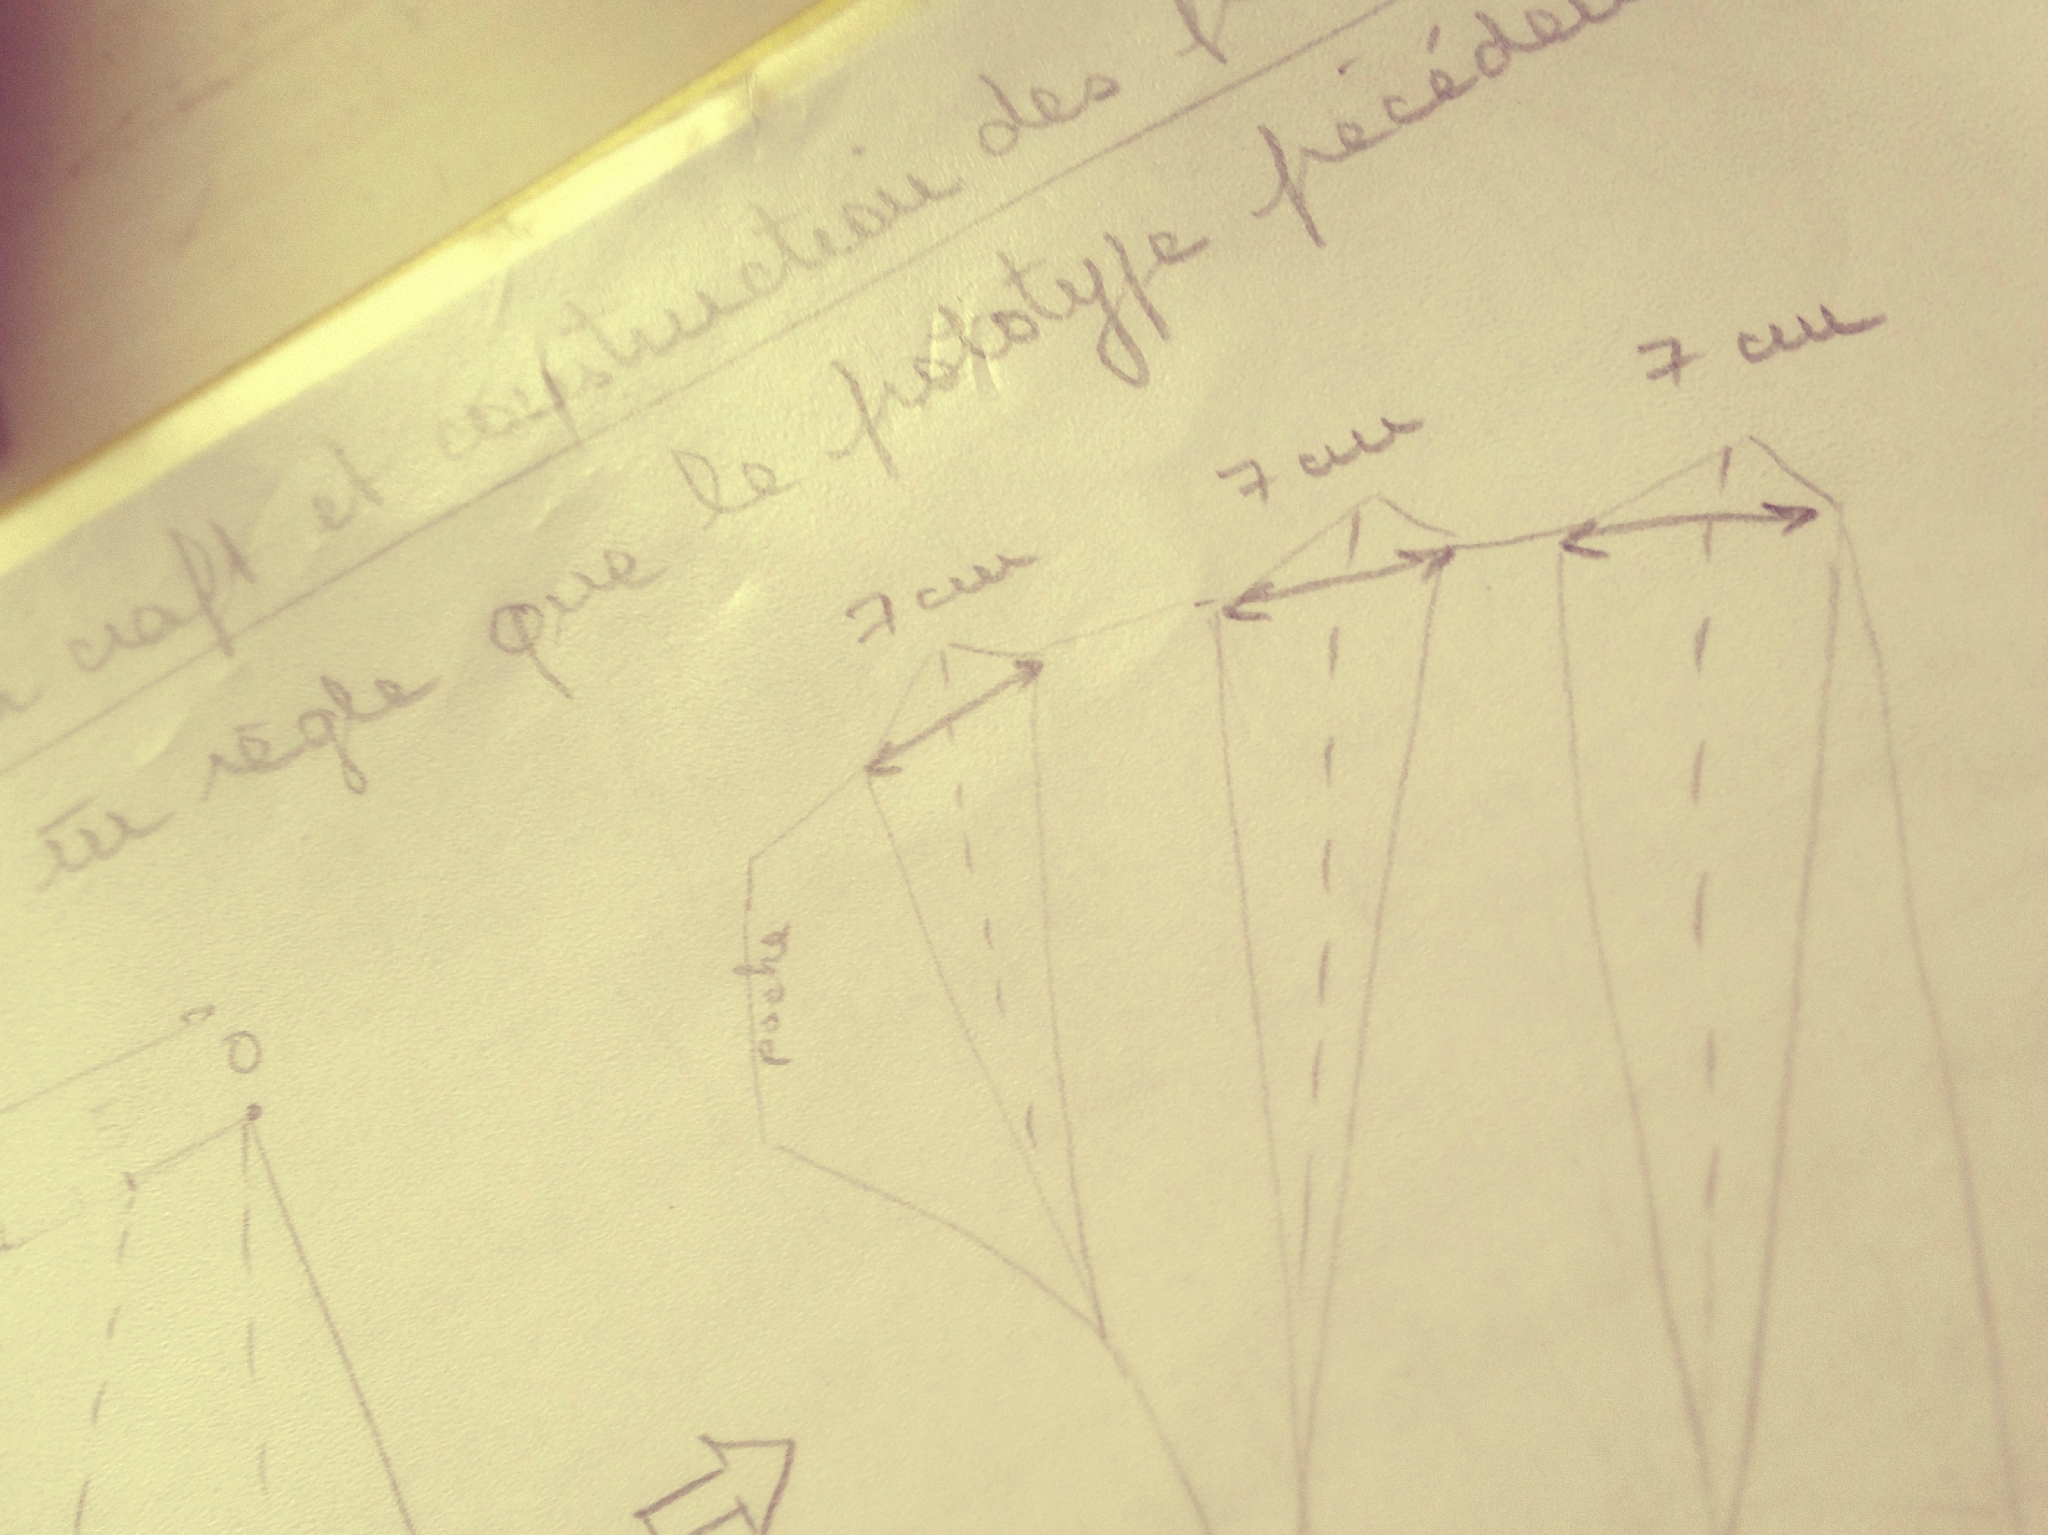 craft et construction des
règle que le prototype précéden
7 cm
7 cm
7 cm
poche
O